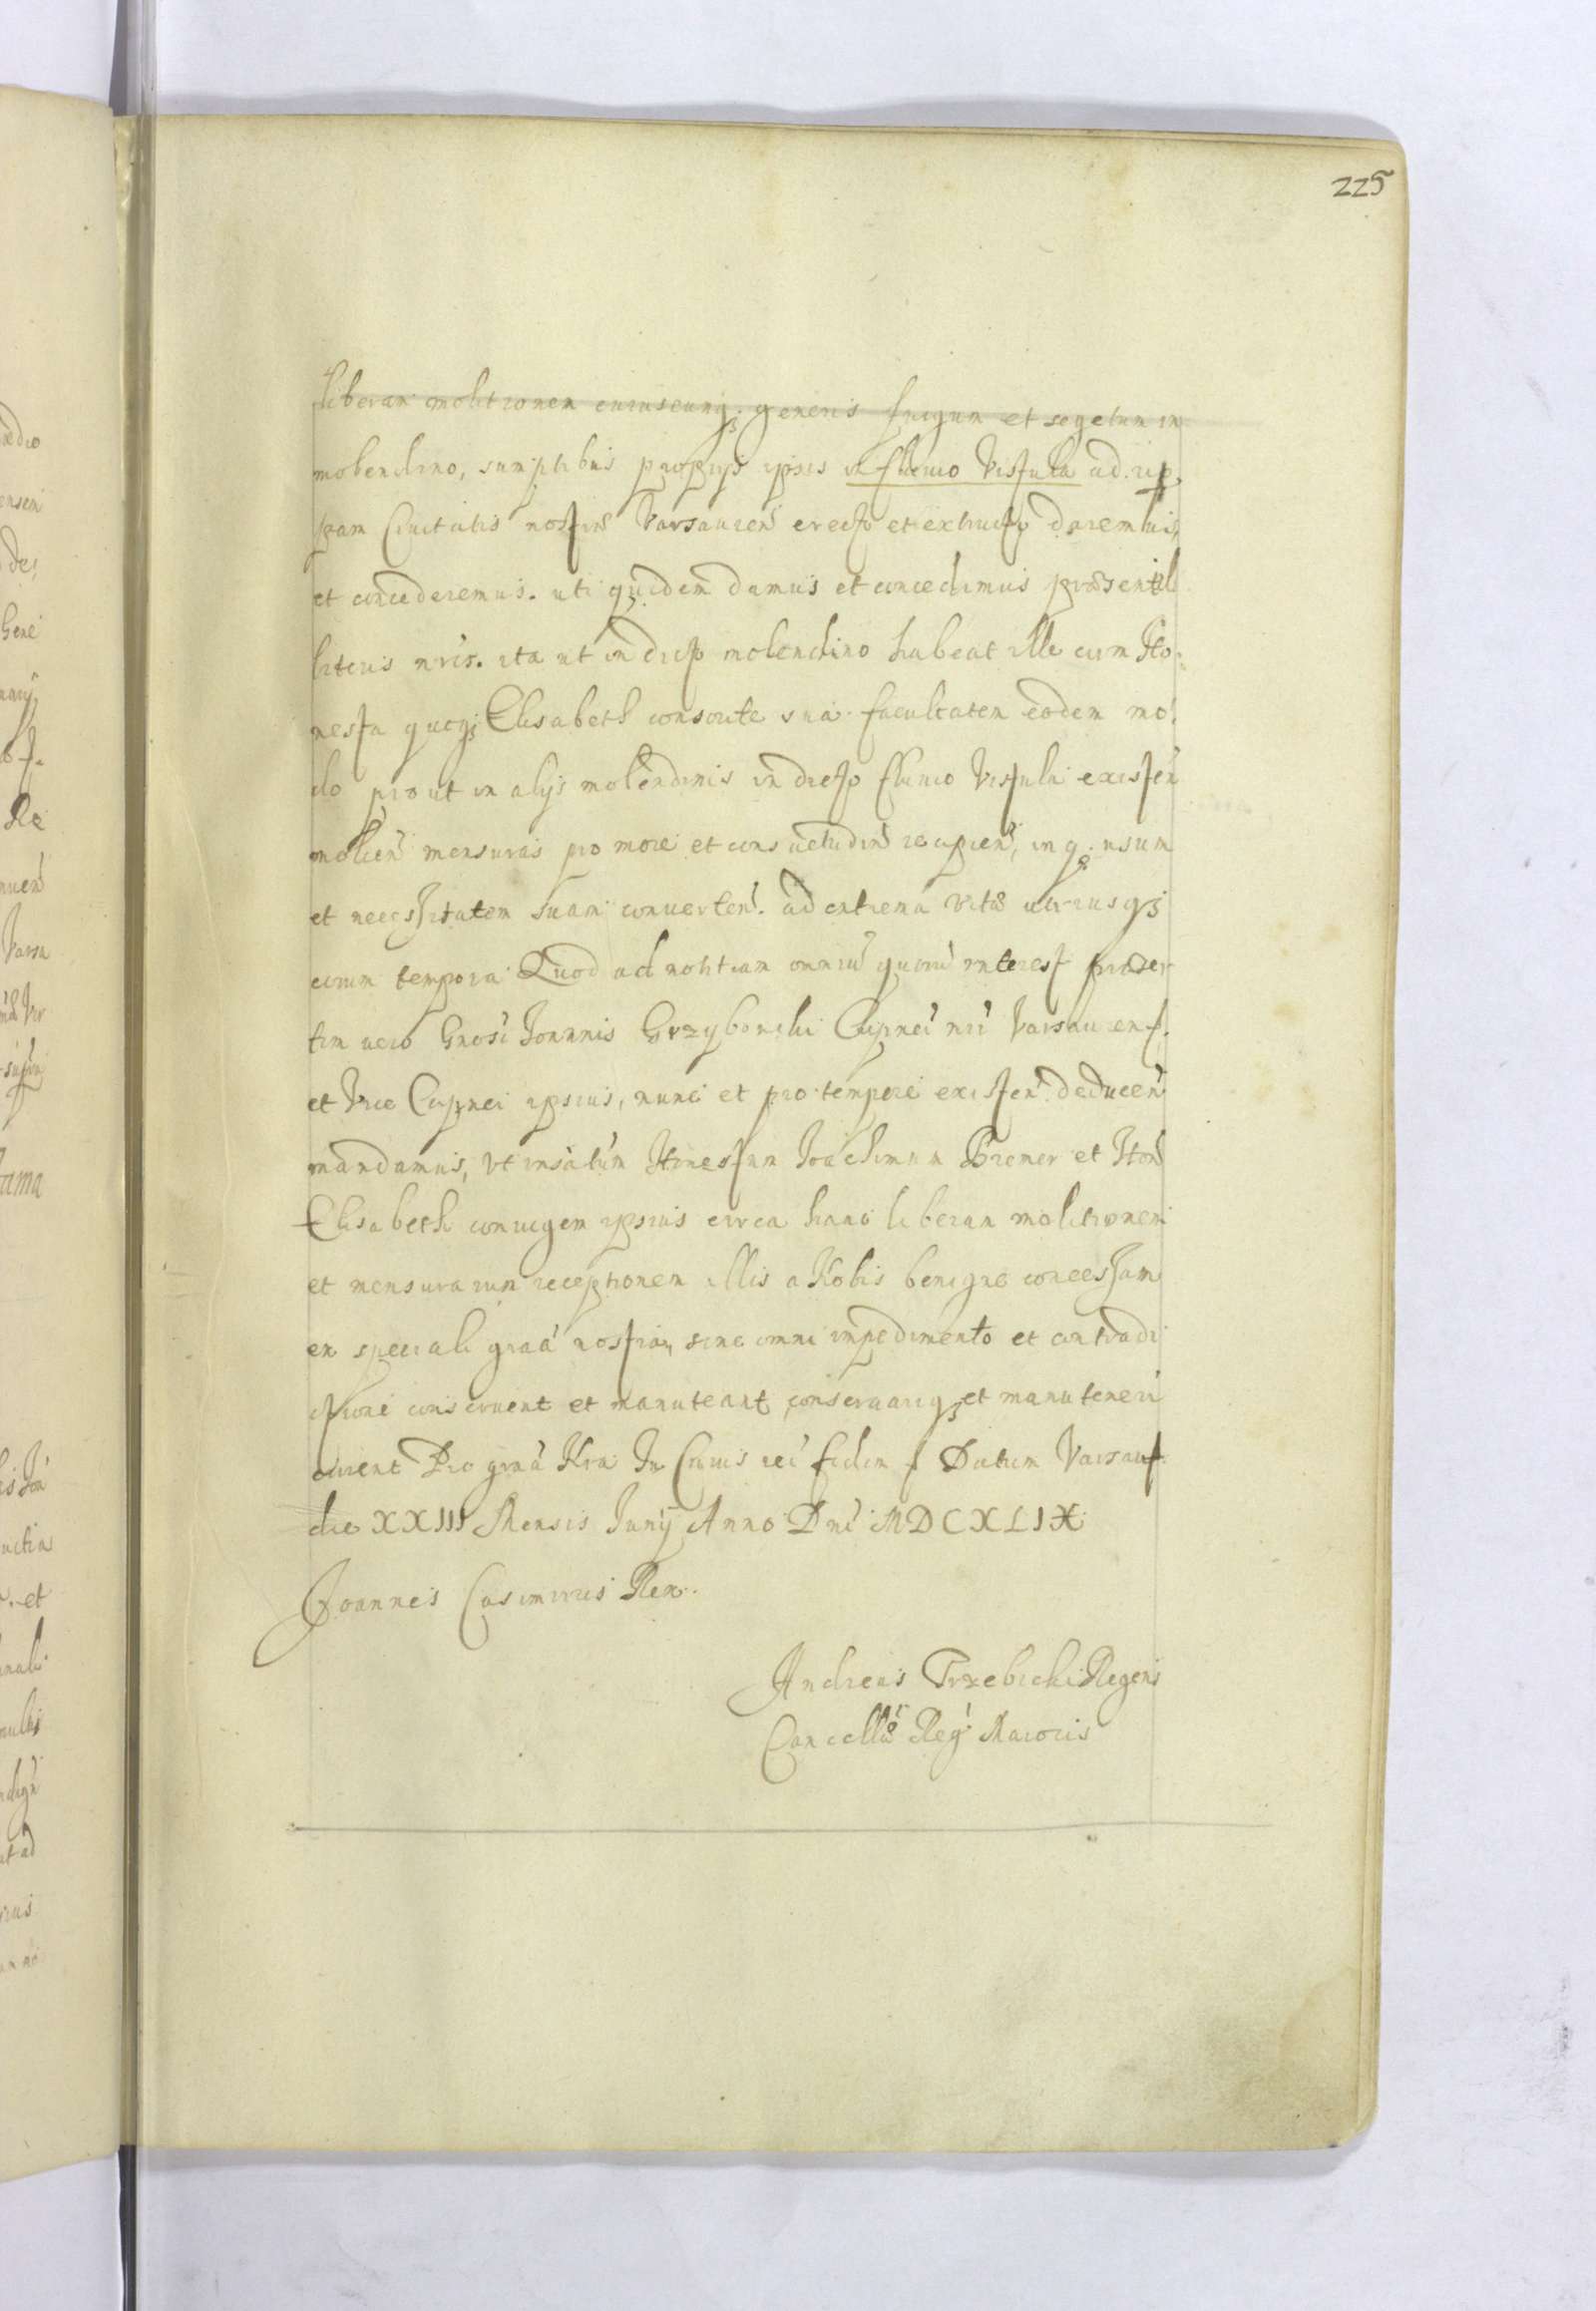 225
liberam molitionem cuiuscunq; generis frugum et segetum in
molendino, sumptibus proprijs ipsius in fluuio Vistula ad rip
pam Ciuitatis nostræ Varsauien̄ erecto et extructo daremus,
et concederemus. uti quidem damus et concedimus præsentib
literis nr̄is. ita ut in dicto molendino habeat ille cum Ho-
nesta quoq; Elisabeth consorte sua facultatem eodem mo-
do prout in alijs molendinis in dicto fluuio Vistula existen̄
molien̄ mensuras pro more et consuetudin̄ recipien̄, in q. usum
et necessitatem suam conuerten̄. ad extrema vitæ utriusq;
eorum tempora Quod ad notitiam omniū quorū interest præser
tim vero Gn̄osi Joannis Grzybowski Capnei nr̄i Varsauien.
et Vice Capnei ipsius, nunc et pro tempore existen̄ deducen̄
mandamus, vt Honestum Joachimum Bremer et Hon̄
Elisabeth coniugem ipsius circa hanc liberam molitionem
et mensurarum receptionem illis a Nobis benigne concessam
ex speciali gr̄aa nostra, sine omni impedimento et contradi
ctione conseruent et manuteant, conseruariq; et manuteneri
curent Pro gr̄na Nr̄a In Cuius rei fidem Datum Varsau
die XXIII Mensis Junij Anno Dn̄i MDCXLIX
Joannes Casimirus Rex.
Andreas Trzebicki Regens
Cancellā Reg̃ Maioris